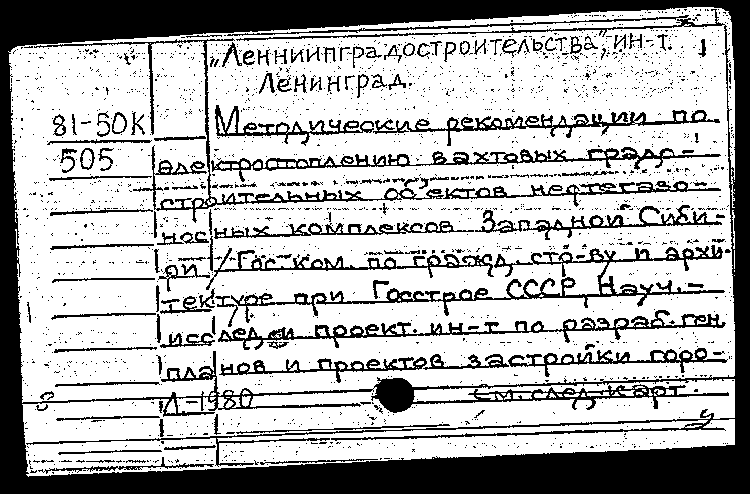 „Ленниипградостроительства", ин-т. 1
Ленинград.
81-50К Методические рекомендации по
505 электроотоплению вахтовых градо-
строительных объектов нефтегазо-
носных комплексов Западной Сиби-
ри / Гос. ком. по гражд. стр-ву и архи-
тектуре при Госстрое СССР, Науч.-
исслед. и проект. ин-т по разраб. ген.
планов и проектов застройки горо-
Л.-1980 См. след. карт.